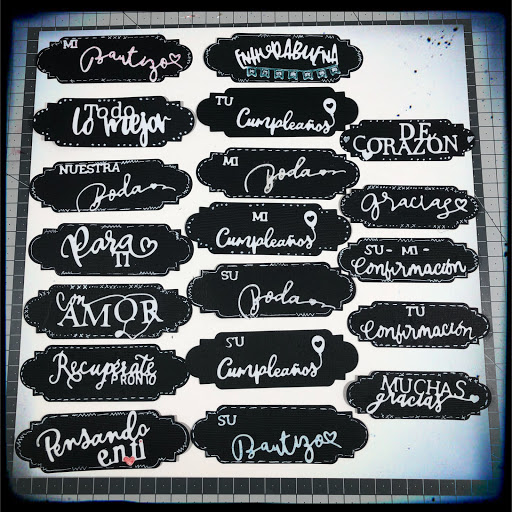 MI
Bautizo
Todo
lo mejor
NUESTRA
Boda
Para
TI
Con
AMOR
Recupérate
PRONTO
Pensando
en ti
ENHORABUENA
TU
Cumpleaños
MI
Boda
MI
Cumpleaños
SU
Boda
SU
Cumpleaños
SU
Bautizo
DE
CORAZÓN
gracias
SU - MI -
Confirmación
TU
Confirmación
MUCHAS
gracias